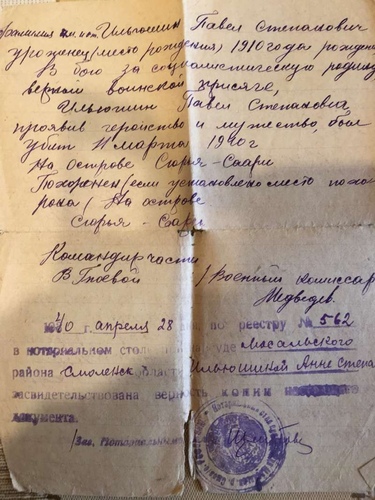 фамилия им. от. Ильюшин Павел Степанович
уроженец (место рождения) 1910 года рожден
В бою за социалистическую родину
верный воинской присяге,
Ильюшин Павел Степанович,
проявив геройство и мужество, был
убит 11 марта 1940 г
На острове Сюрья-Саари
Похоронен (если установлено место похо
рона) На острове
Сюрья-Саари
Командир части
В Гноевой
/ Военный комиссар
Медведев.
1940 г. апреля 28 по реестру № 562
в нотариальном столе суде Мосальского
района Смоленск области Ильюшиной Анне Степа
засвидетельствована верность копии
документа.
/Зав. Нотариальным